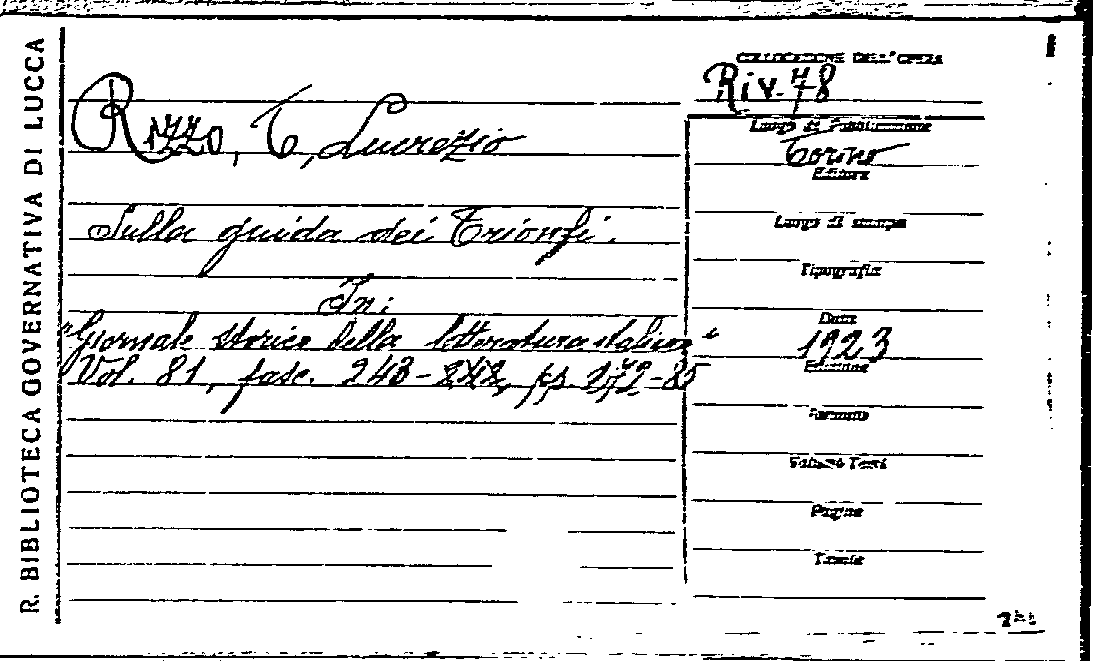 R. BIBLIOTECA GOVERNATIVA DI LUCCA
COLLOCAZIONE DELL'OPERA
Riv. 78
Rizzo, T, Lucrezio
Sulla guida dei Trionfi.
In:
"Giornale storico della letteratura italiana"
Vol. 81, fasc. 243-242, pp 272-85
Luogo di Pubblicazione
Torino
Editore
Luogo di stampa
Tipografia
Data
1923
Edizione
Formato
Volumi Tomi
Pagine
Tavole